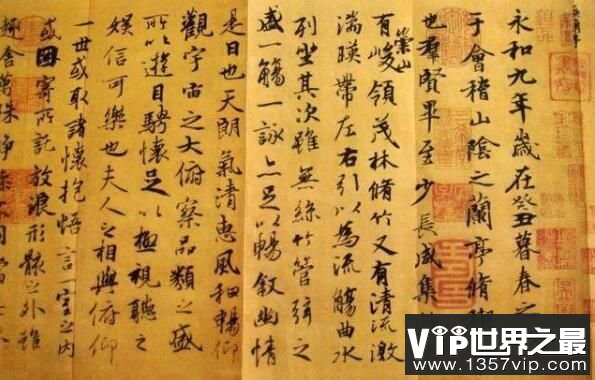 永和九年歲在癸丑暮春之
于會稽山陰之蘭亭脩禊
也羣賢畢至少長咸集
有崇山峻領茂林脩竹又有清流激
湍暎帶左右引以為流觴曲水
列坐其次雖無絲竹管弦之
盛一觴一詠亦足以暢敘幽情
是日也天朗氣清惠風和暢仰
觀宇宙之大俯察品類之盛
所以遊目騁懷足以極視聽之
娛信可樂也夫人之相與俯仰
一世或取諸懷抱悟言一室之内
或因寄所託放浪形骸之外雖
趣舍萬殊靜躁不同當
VIP世界之最
www.1357vip.com